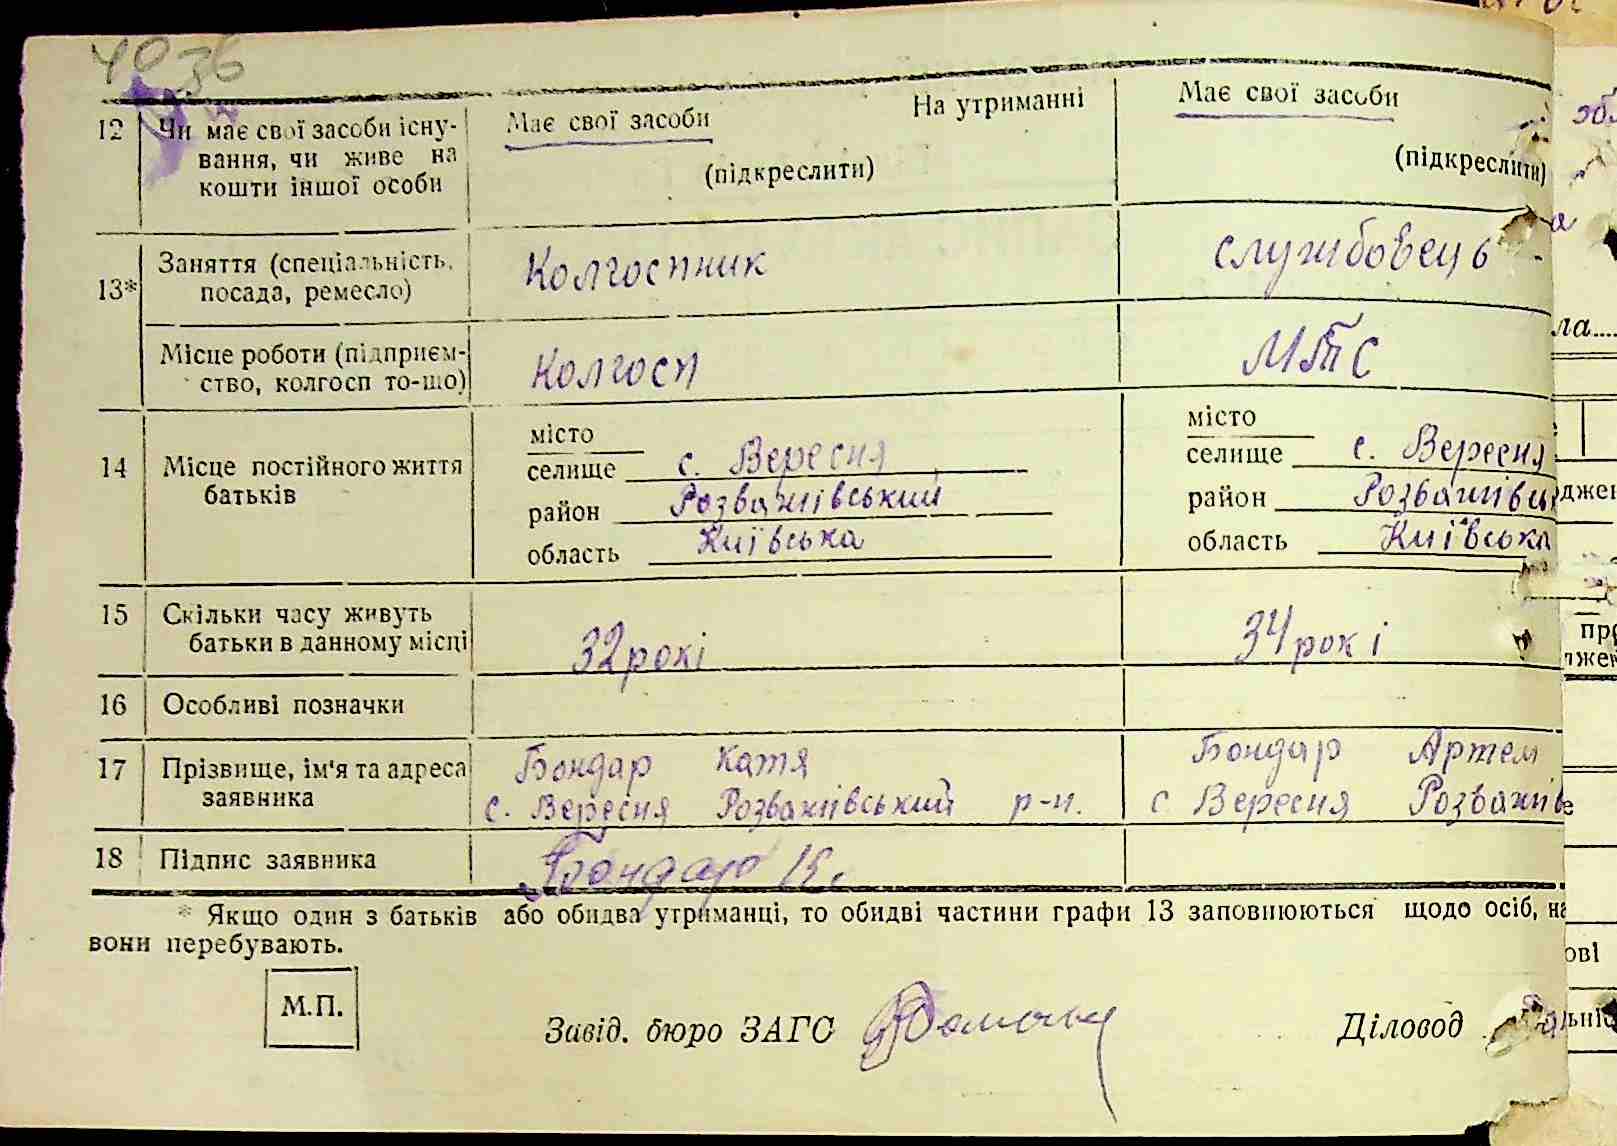 4036
12 Чи має свої засоби існу- Має свої засоби На утриманні Має свої засоби
вання, чи живе на
кошти іншої особи (підкреслити) (підкреслити)
13* Заняття (спеціальність, Колгоспник службовець
посада, ремесло)
Місце роботи (підприєм- Колгосп МТС
ство, колгосп то-що)
14 Місце постійного життя місто місто
батьків селище с. Вересня селище с. Вересня
район Розважівський район Розважівсь
область Київська область Київська
15 Скільки часу живуть
батьки в данному місці 32 рокі 34 рокі
16 Особливі позначки
17 Прізвище, ім'я та адреса Бондар Катя Бондар Артем
заявника с. Вересня Розважівський р-н. с Вересня Розважів
18 Підпис заявника Бондар К.
* Якщо один з батьків або обидва утриманці, то обидві частини графи 13 заповнюються щодо осіб, на
вони перебувають.
М.П.
Завід. бюро ЗАГС Діловод